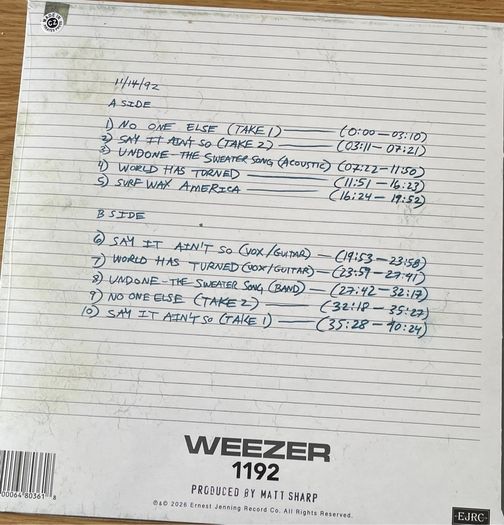 MADE IN
CZ
11/14/92
A SIDE
1) NO ONE ELSE (TAKE 1) —— (0:00 — 03:10)
2) SAY IT AIN'T SO (TAKE 2) —— (03:11 — 07:21)
3) UNDONE - THE SWEATER SONG (ACOUSTIC) (07:22 — 11:50)
4) WORLD HAS TURNED —— (11:51 — 16:23)
5) SURF WAX AMERICA —— (16:24 — 19:52)
B SIDE
6) SAY IT AIN'T SO (VOX/GUITAR) — (19:53 — 23:58)
7) WORLD HAS TURNED (VOX/GUITAR) — (23:59 — 27:41)
8) UNDONE - THE SWEATER SONG (BAND) — (27:42 — 32:17)
9) NO ONE ELSE (TAKE 2) —— (32:18 — 35:27)
10) SAY IT AIN'T SO (TAKE 1) —— (35:28 — 40:24)
WEEZER
1192
PRODUCED BY MATT SHARP
℗&© 2026 Ernest Jenning Record Co. All Rights Reserved.
00064 80361 8
EJRC